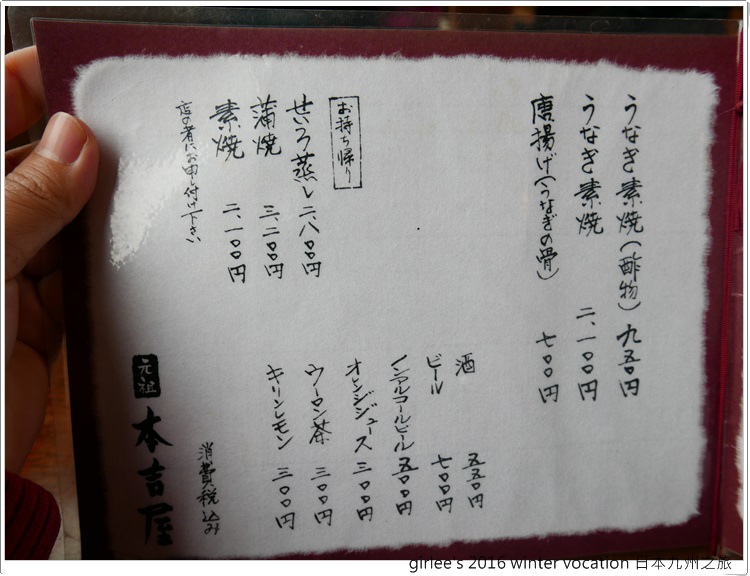 うなぎ素焼(酢物) 九五〇円
うなぎ素焼 二、一〇〇円
唐揚げ(うなぎの骨) 七〇〇円
酒 五五〇円
ビール 七〇〇円
ノンアルコールビール 五〇〇円
オレンジジュース 三〇〇円
ウーロン茶 三〇〇円
キリンレモン 三〇〇円
お持ち帰り
せいろ蒸し 二、八〇〇円
蒲焼 三、二〇〇円
素焼 二、一〇〇円
店の者にお申し付け下さい
消費税込み
元祖
本吉屋
girlee's 2016 winter vocation 日本九州之旅